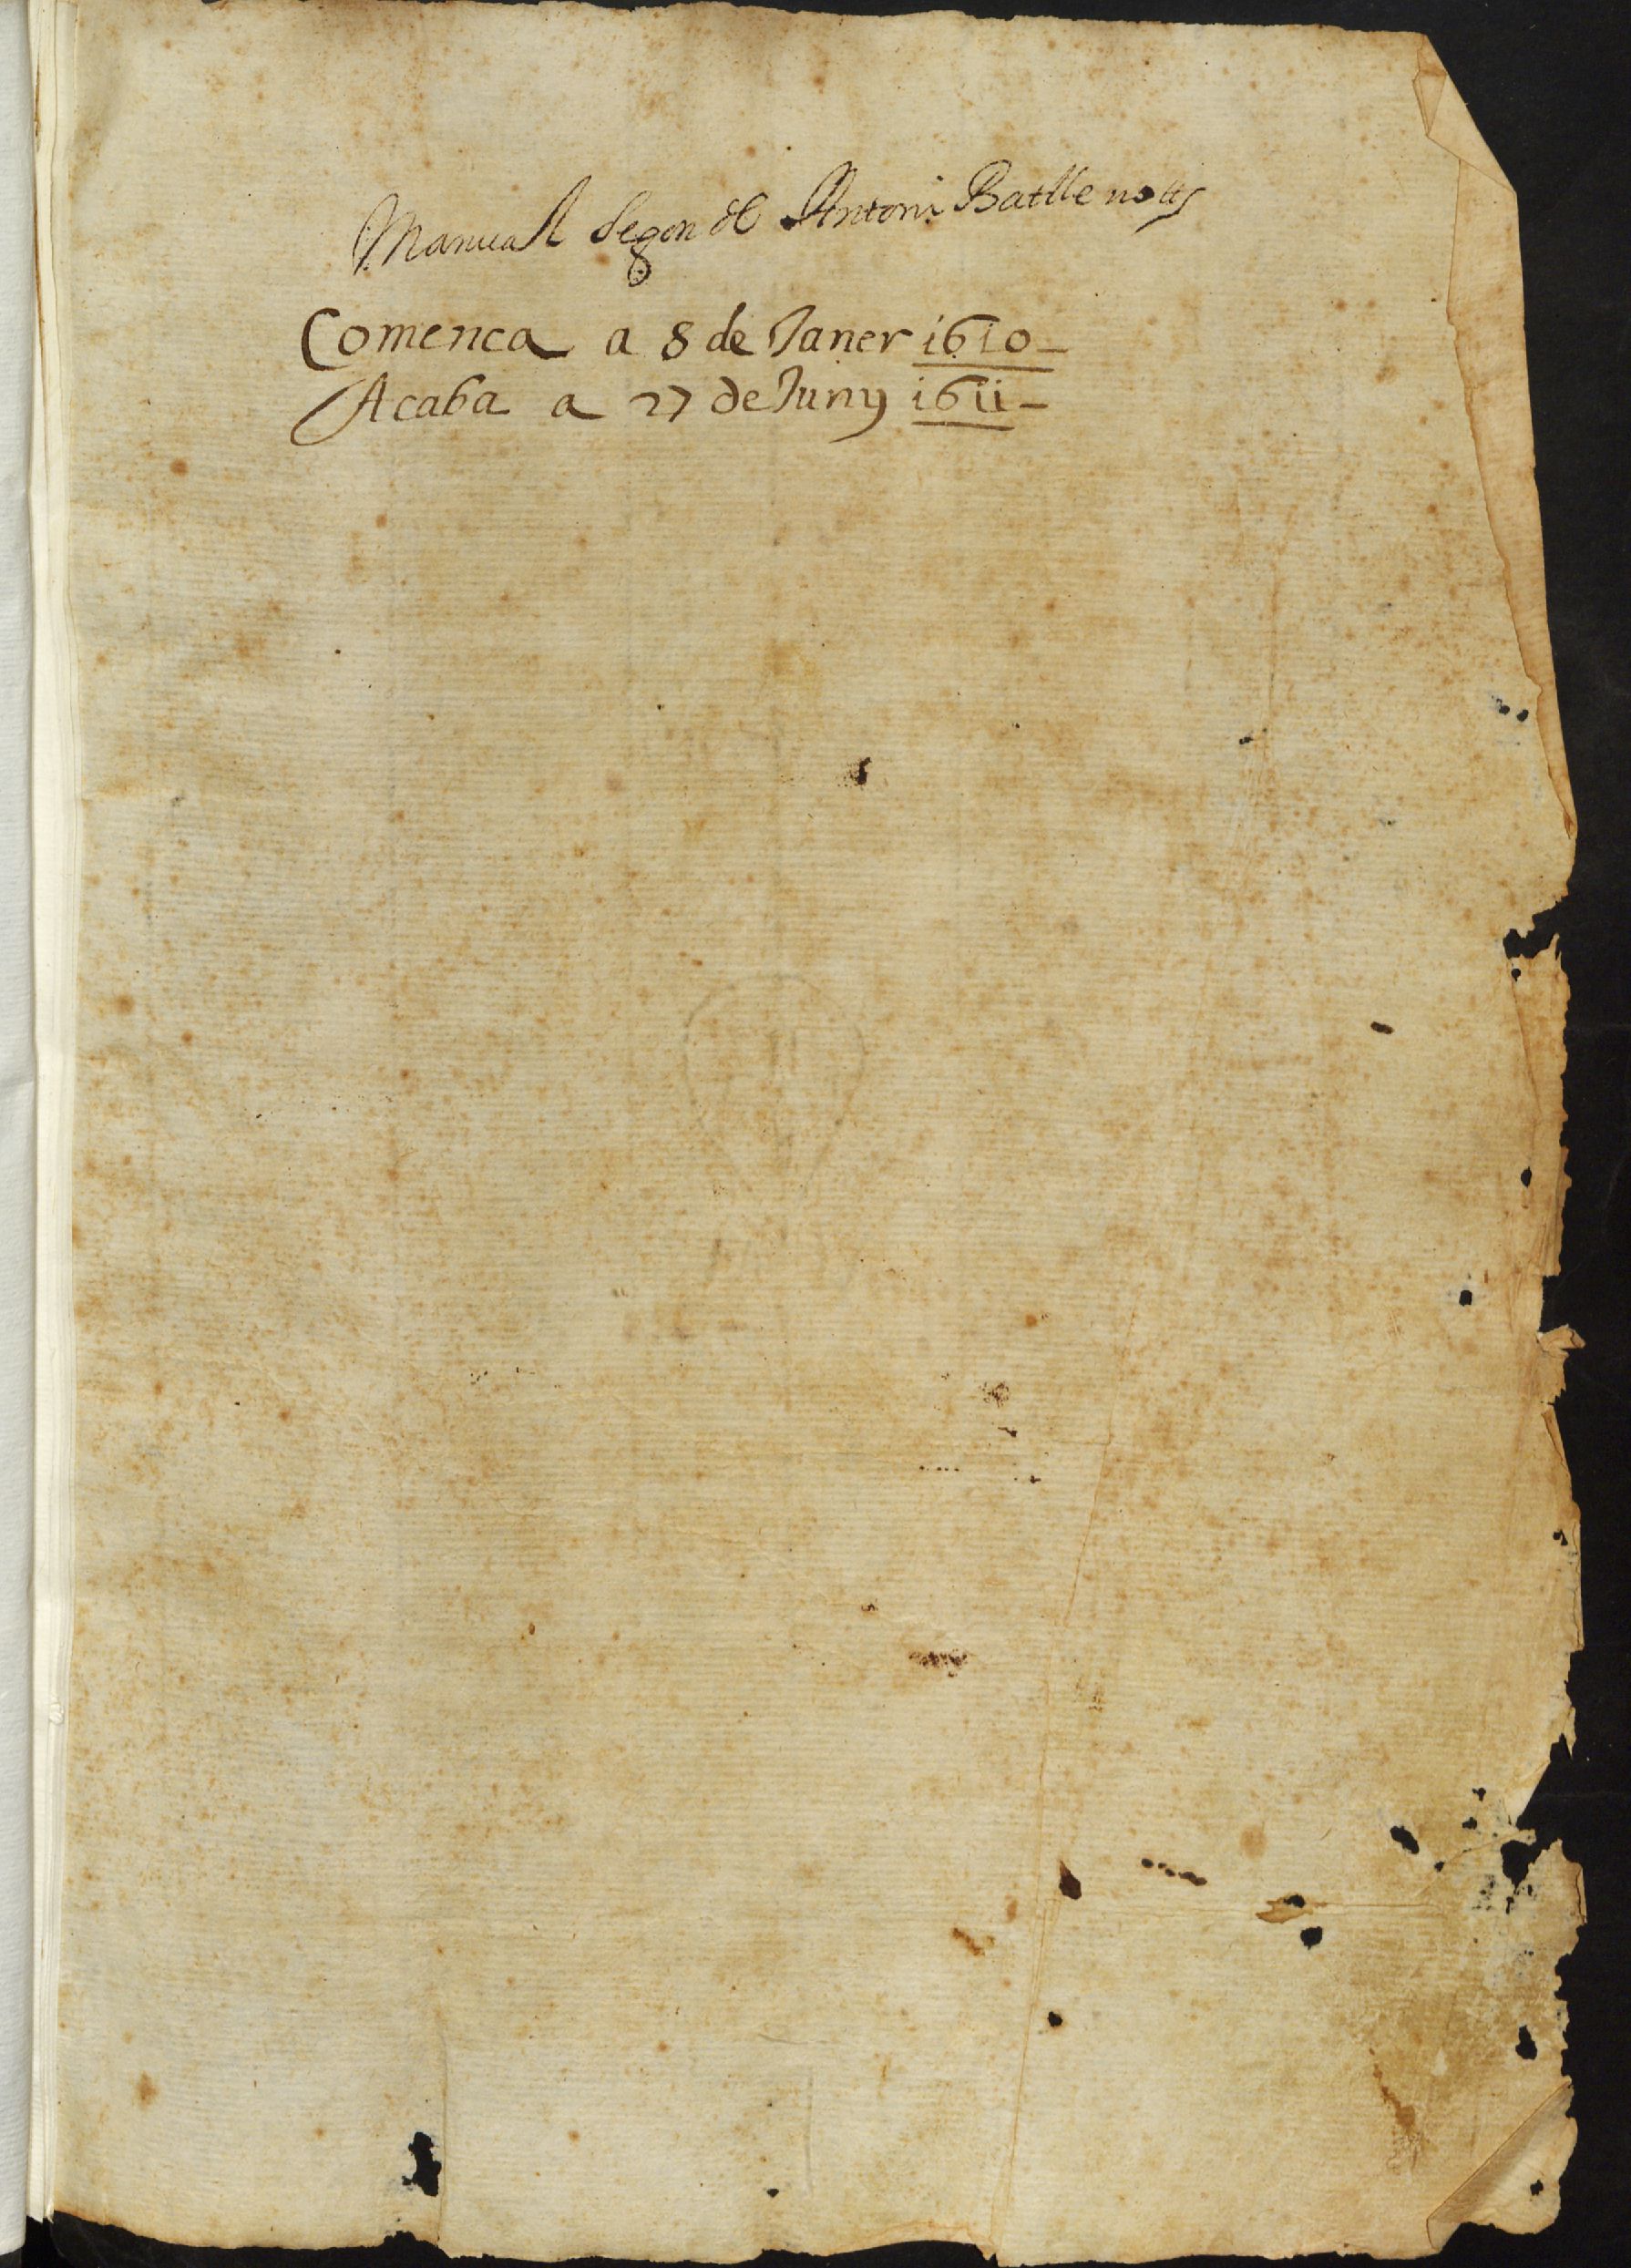 Manual Segon de Antoni Batlle notts
Comenca a 8 de Janer 1610_
Acaba a 27 de Juny 1611_